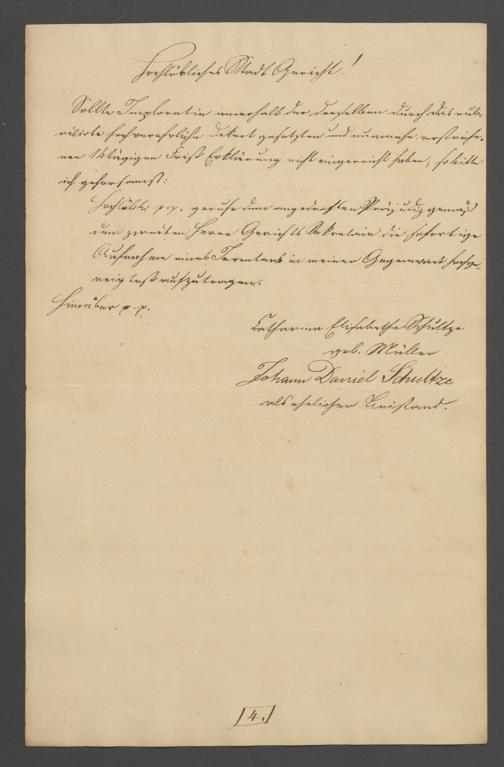 Hochlöbliches Stadt Gericht!
Sollte Imploratin innerhalb der derselben durch das rub-
ricirte hochverehrliche Dekret gesetzten und nunmehr verstriche-
nen 14tägigen Frist Erklärung nicht eingereicht haben; so bitte
ich gehorsamst:
Hochlöbl. p. p. geruhe dem angedrohten Präjudiz gemäß
dem zweiten Herrn Gerichts Sekretair die sofortige
Aufnahme eines Inventars in meiner Gegenwart hochge-
neigtest aufzutragen.
Hierüber p. p.
Catharina Elisabetha Schultze
geb. Müller
Johann Daniel Schultze
als ehelicher Beistand.
4.